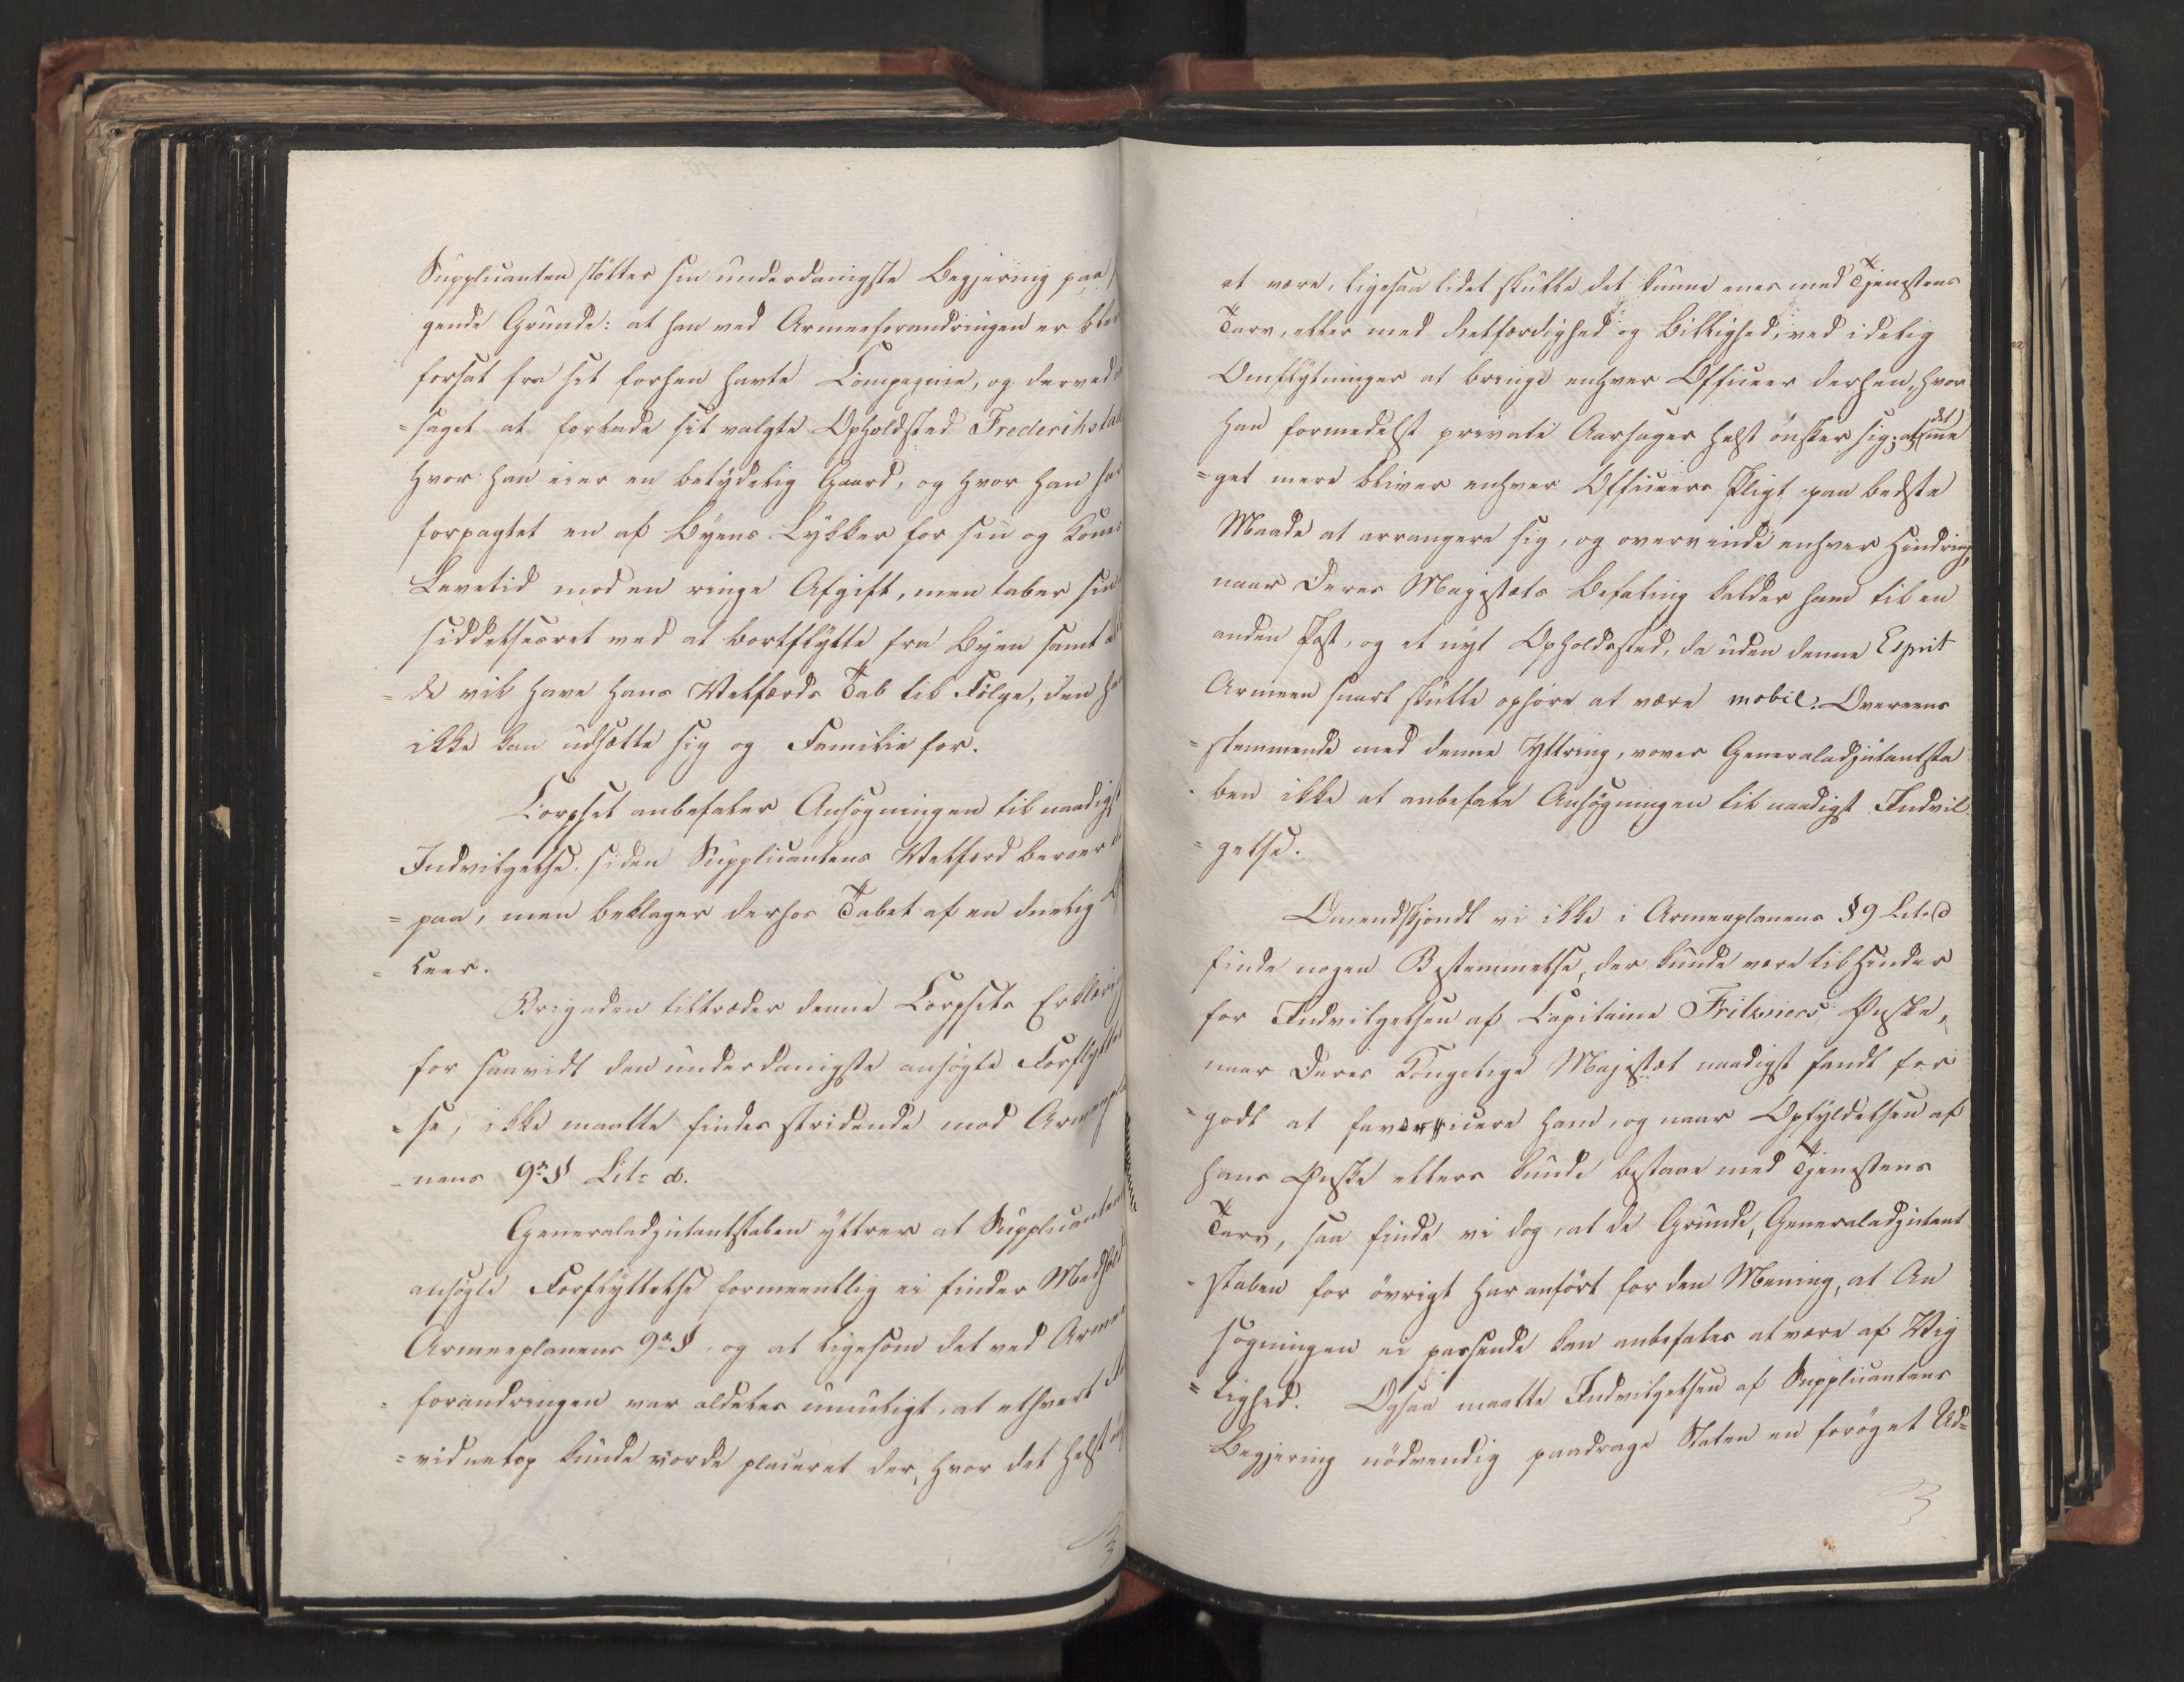 Supplicanten støtter sin underdanigste Begjering paa
gende Grunde: at han ved Armeeforandringen er ble
forsat fra sit forhen havte Compagnie, og derved
=saget at forlade sit valgte Opholdsted Frederikstad
hvor han eier en betydelig Gaard, og hvor han ha
forpagtet en af Byens Løkker for sin og Kones
Levetid mod en ringe Afgift, men taber sin
siddelsesret ved at bortflytte fra Byen samt
=de vil have hans Velfærds Tab til Følge, den ha
ikke kan udsætte sig og Familie for.
Corpset anbefaler Ansøgningen til naadigst
Indvilgelse, siden Supplicantens Velfærd beroer
=paa, men beklager derhos Tabet af en duelig
=ceer.
Brigaden tiltræder denne Corpsets Erklæring
for saavidt den underdanigste ansøgte Forflyttel
=se, ikke maatte findes stridende mod Armeepla
=nens 9de § Lit: d.
Generaladjutantstaben yttrer at Supplicanten
ansøgte Forflyttelse formeentlig ei finder Medhold
Armeeplanens 9de §, og at ligesom det ved Armee
=forandringen var aldeles umuligt, at ethvert
=vid netop kunde vorde placeret der, hvor det helst
at være, ligesaa lidet skulle det kunne enes med Tjenestens
Tarv, eller med Retfærdighed og Billighed, ved idelig
Omflytninger at bringe enhver Officeer derhen, hvor
han formedelst private Aarsager helst ønsker sig; at det me
=get mere bliver enhver Officeers Pligt paa bedste
Maade at arrangere sig, og overvinde enhver Hindring,
naar Deres Majestæts Befaling kalder ham til en
anden Post, og et nyt Opholdssted, da uden denne Esprit
Armeen snart skulle ophøre at være mobil. Overeens
=stemmende med denne Yttring, vover Generaladjutantsta
=ben ikke at anbefale Ansøgningen til naadigst Indvil
=gelse.
Omendskjøndt vi ikke i Armeeplanens § 9 Lit. d
finde nogen Bestemmelse, der kunde være til Hinder
for Indvilgelsen af Capitaine Fritzners Ønske,
naar Deres Kongelige Majestæt naadigst fandt for
=godt at favorisere ham, og naar Opfyldelsen af
hans Ønske ellers kunde bestaae med Tjenestens
Tarv, saa finde vi dog, at de Grunde, Generaladjutant
=staben for øvrigt har anført for den Mening, at An
søgningen ei passende kan anbefales at være af Vig
=tighed. Ogsaa maatte Indvilgelsen af Supplicantens
Begjering nødvendig paadrage Staten en forøget Ud=